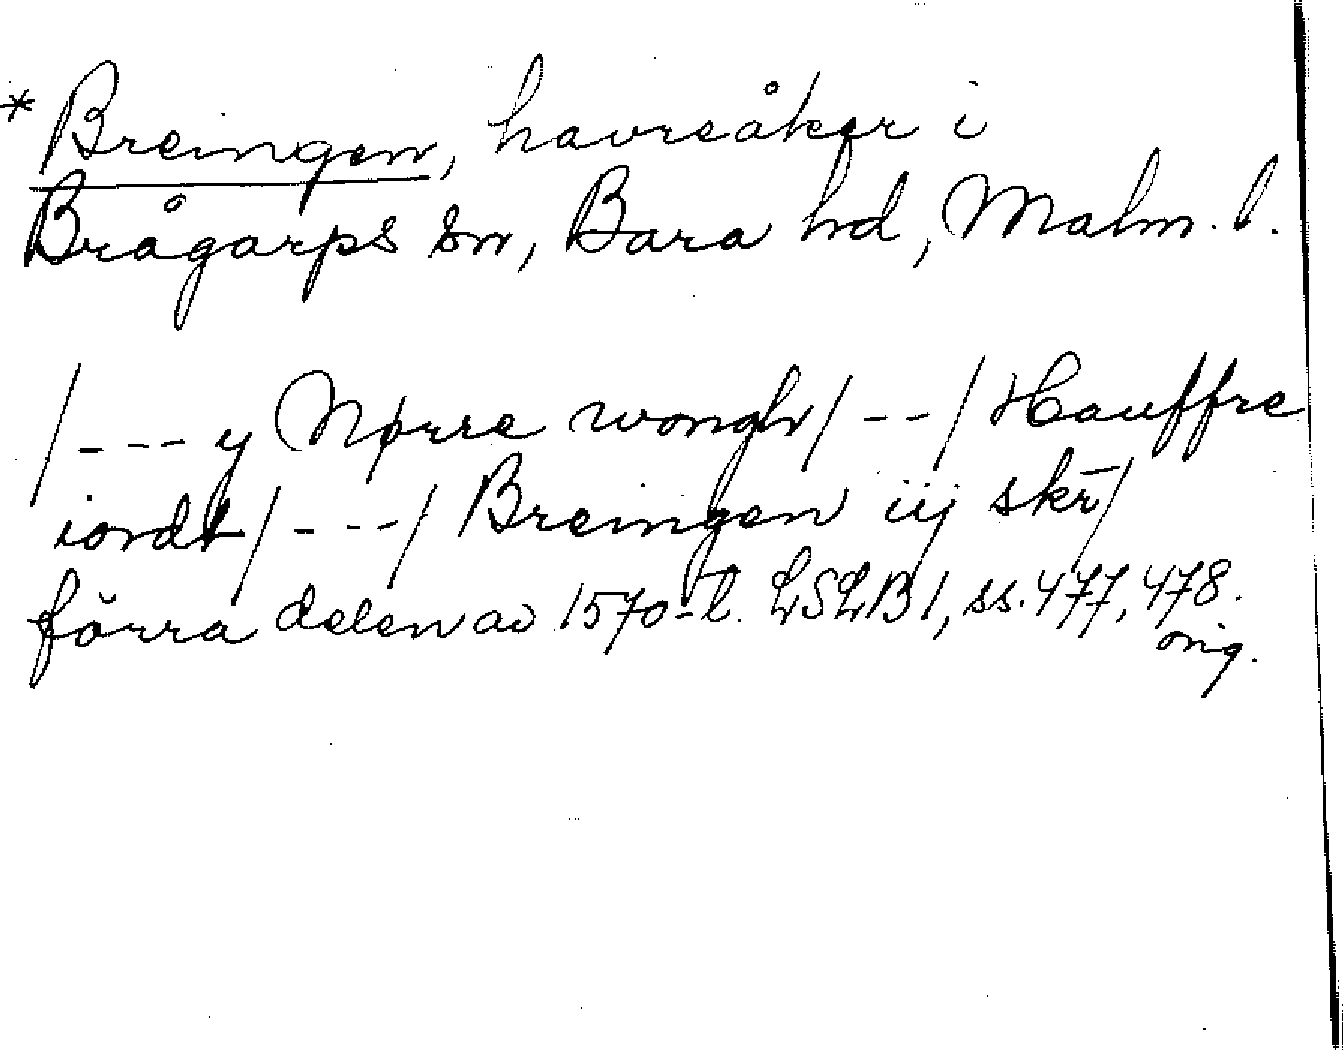 * Breingen, havreåker i
Brågarps sn, Bara hd, Malm. l.
/---y Nørre wongh/--/Hauffre
iordt/---/ Breingen iij skr̄/
förra delen av 1570-t. LSLB1, ss. 477, 478.
orig.